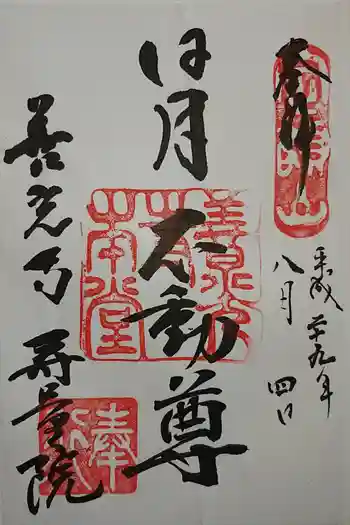 奉拝
平成廿九年
八月四日
日月不動尊
善光寺 寿量院